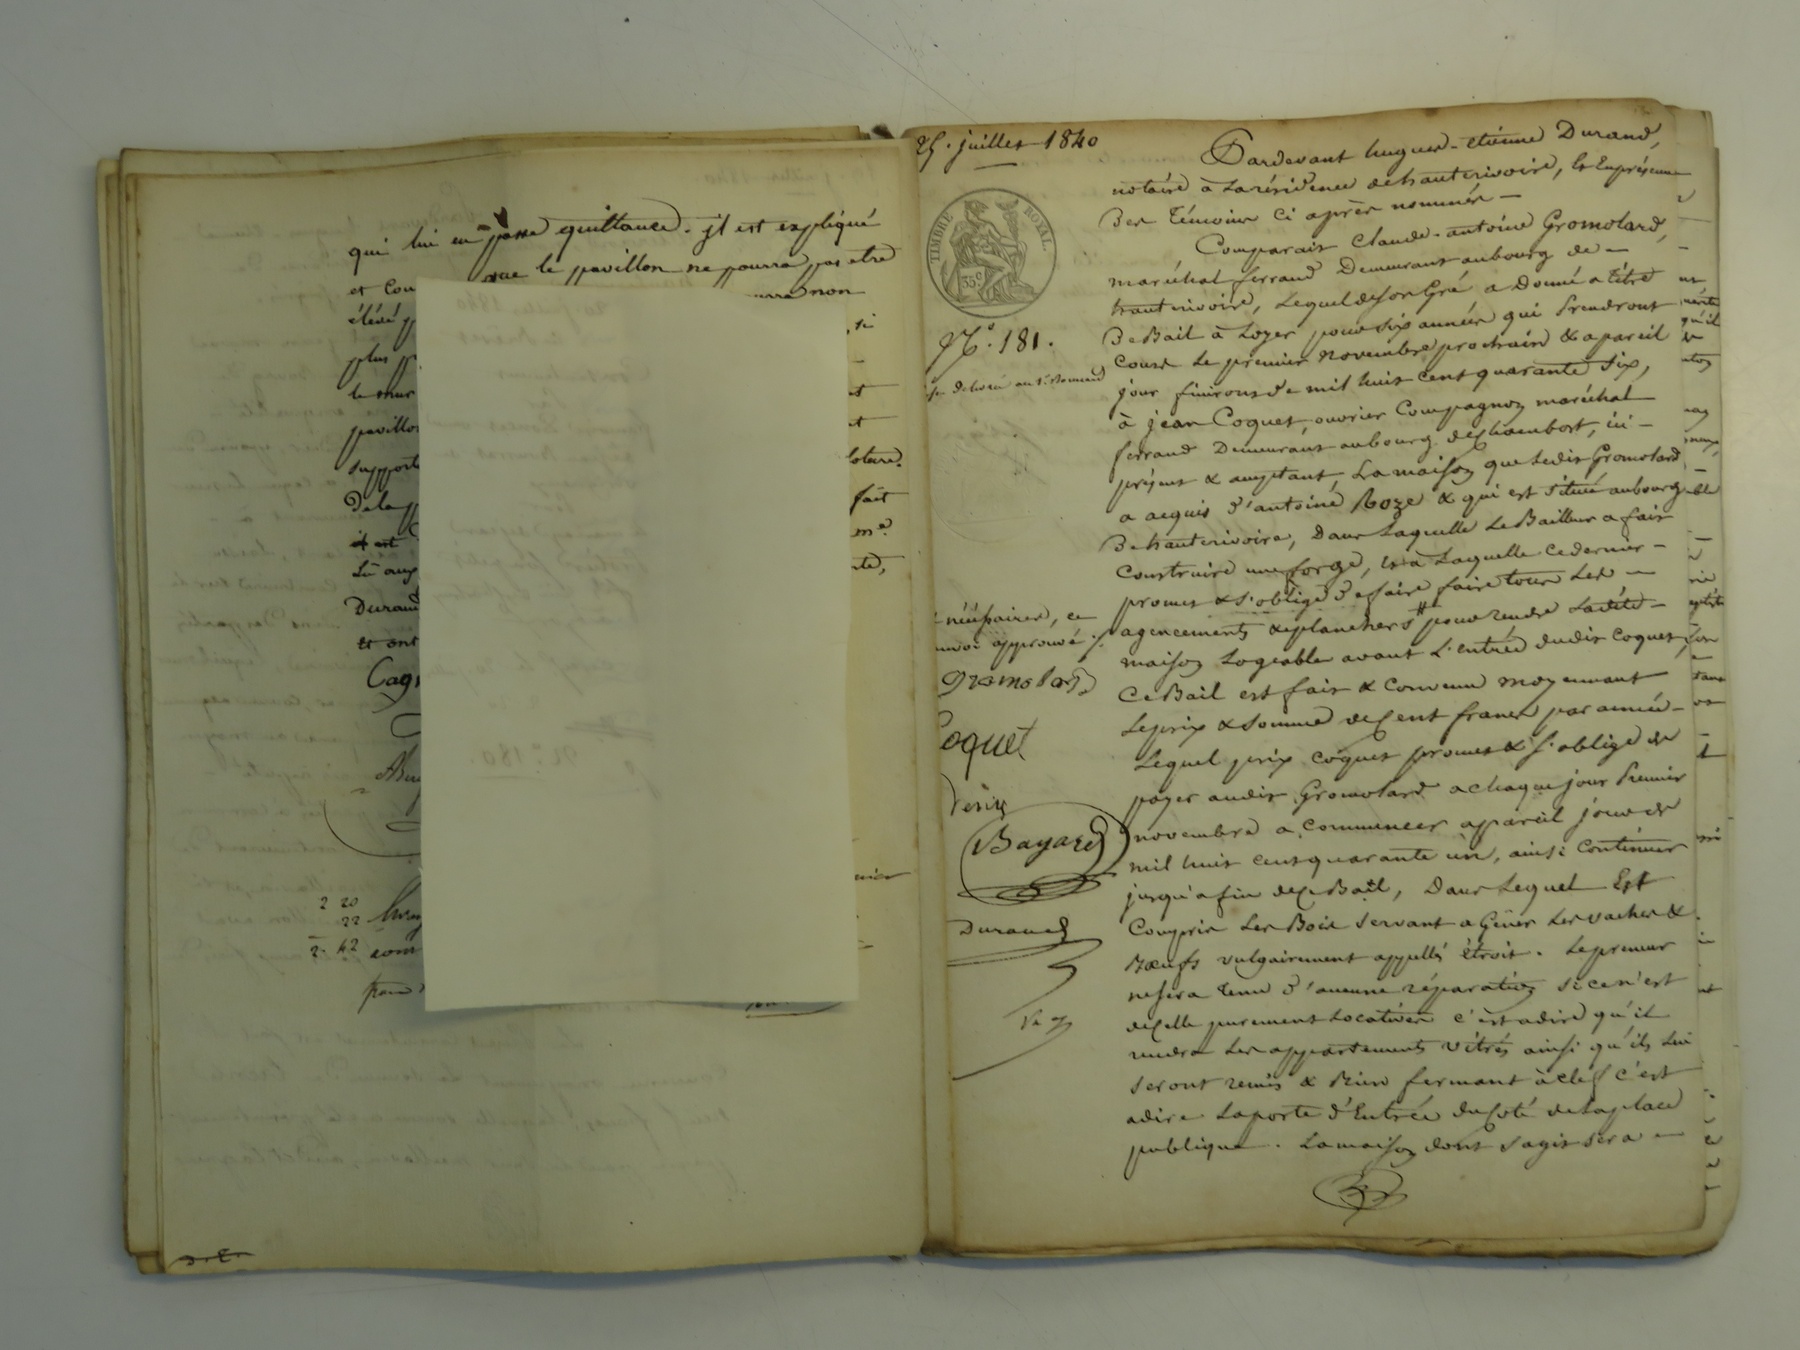 qui lui en passe quittance. il est expliqué
et con que le pavillon ne pourra pas etre
élévé non
plus si
le mur
pavillon
supporte
De la fait
il est me.
Lu aux
Durand
et ont
Cagn
2 20
22
2. 42
25. juillet 1840
TIMBRE ROYAL.
35c
N°. 181.
Pardevant hugues-etienne Durand,
notaire à La résidence de hauterivoire, & En présence
Des Témoins Ci après nommés —
Comparait Claude-antoine Gromolard,
maréchal ferrand Demeurant au bourg de —
hauterivoire, Lequel de son Gré a Donné a titre
De Bail à Loyer pour six années qui Prendront
Cours Le premier novembre prochain & a pareil
jour finirons de mil huit cent quarante Six,
à jean Coquet, ouvrier Compagnon maréchal
ferrand Demeurant au bourg de Chambost, ici —
présent & acceptant, La maison que Ledit Gromolard
a acquis d'antoine Roze & qui est Située au bourg
De hauterivoire, Dans Laquelle Le Bailleur a fait
Construire une forge, & à Laquelle ce dernier —
promet & s'oblige d'y faire faire tous Les —
agencements & planchers # pour rendre Ladite —
maison Logeable avant L'entrée dudit Coquet,
Ce Bail est fait & Convenu moyennant
Le prix & Somme de Cent francs par année —
Lequel prix Coquet promet & s'oblige de
payer audit Gromolard a chaque jour Premier
novembre a Commencer a pareil jour de
mil huit cent quarante un, ainsi Continuer
jusqu'a fin de Ce Bail, Dans Lequel Est
Compris Les Bois Servant a Gêner Les vaches &
Bœufs vulgairement appellés étroit. Le preneur
ne Sera Tenu d'aucune réparation Si ce n'est
de Celle purement Locatives c'est adire qu'il
rendra Les appartements vitrés ainsi qu'ils Lui
Seront remis & Bien fermant à clef c'est
adire La porte d'Entrée du Coté de La place
publique. La maison dont s'agit Sera —
nécéssaires, ce
renvoi approuvé ./.
Gromolard
Coquet
Bayard
Durand